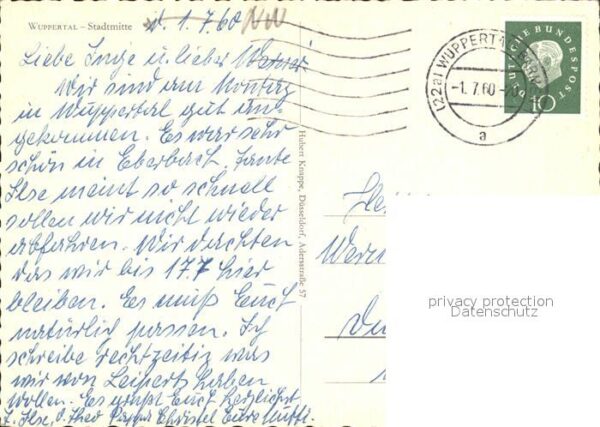 WUPPERTAL – Stadtmitte
W. 1.7.60
Liebe Inge u. lieber Werner
Wir sind am Montag
in Wuppertal gut an-
gekommen. Es war sehr
schön in Eberbach. Tante
Ilse meint so schnell
sollen wir nicht wieder
abfahren. Wir dachten
das wir bis 17.7 hier
bleiben. Es muß Euch
natürlich passen. Ich
schreibe rechtzeitig was
wir von Leipert haben
wollen. Es grüßt Euch herzlichst
T. Ilse, O. Theo Pappa Christel Eure Mutti.
Hubert Knüppe, Düsseldorf, Adersstraße 57
(22a) WUPPERTAL
-1.7.60
a
DEUTSCHE BUNDESPOST
10
privacy protection
Datenschutz